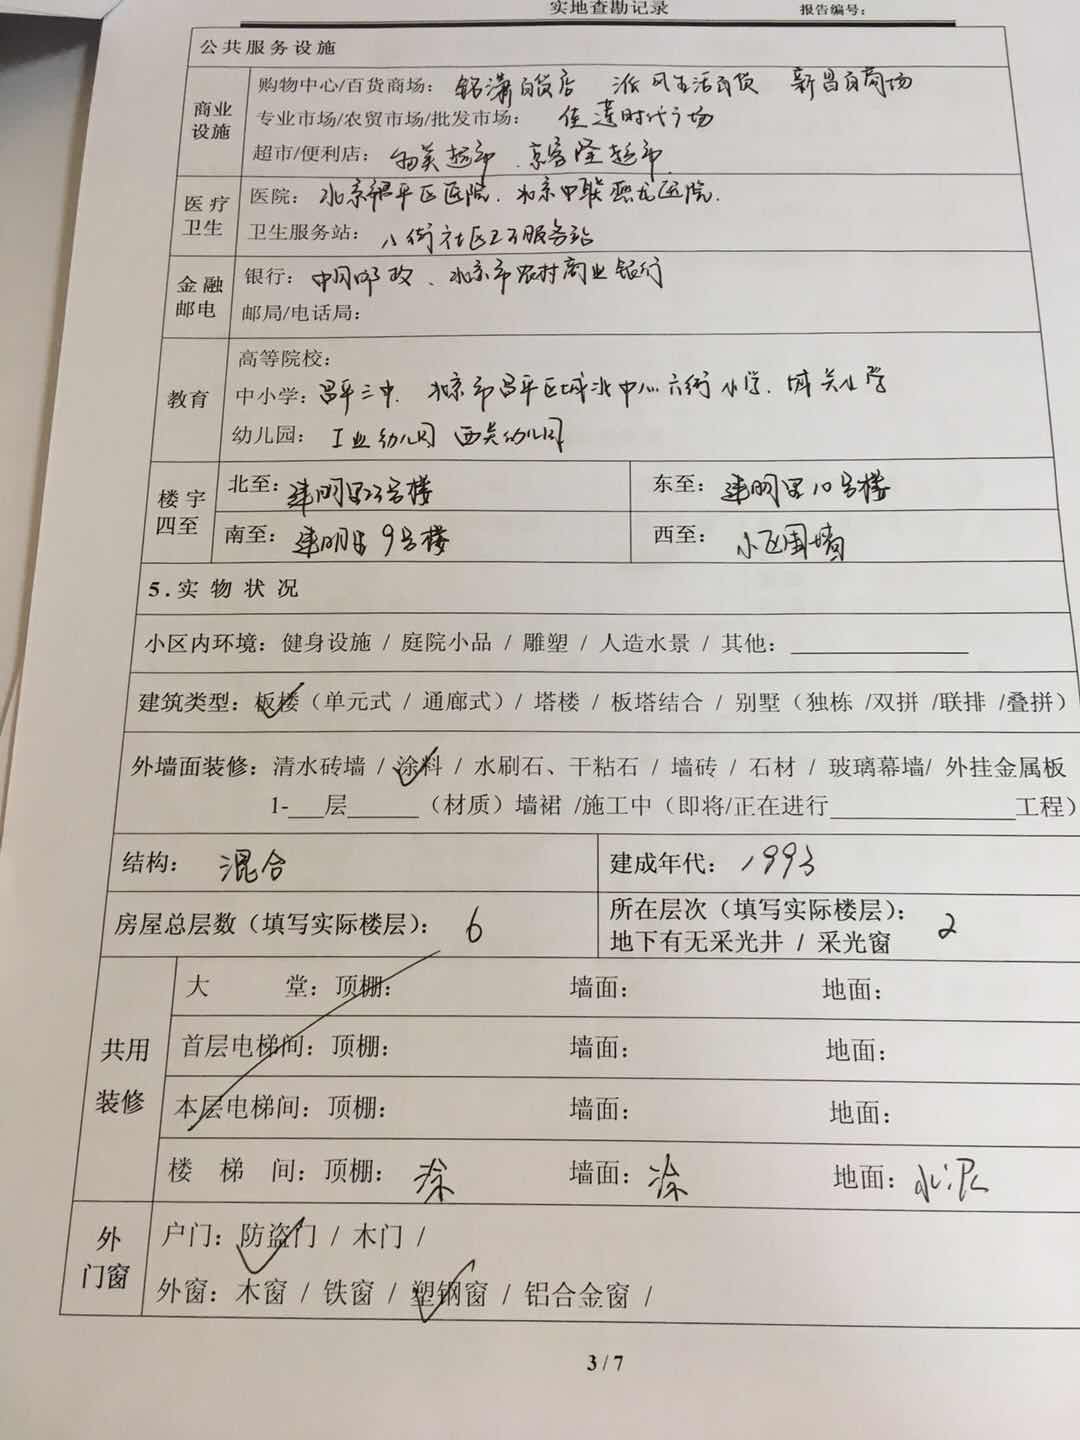 实地查勘记录 报告编号：
公共服务设施
商业设施
购物中心/百货商场： 铭潇百货店 派风生活百货 新昌百商场
专业市场/农贸市场/批发市场： 佳莲时代广场
超市/便利店： 物美超市、京客隆超市
医疗卫生
医院： 北京昌平区医院、北京中联 医院.
卫生服务站： 八街社区卫生服务站
金融邮电
银行： 中国邮政、北京市农村商业银行
邮局/电话局：
教育
高等院校：
中小学： 昌平三中、北京市昌平区城北中心六街小学、城关小学
幼儿园： 工业幼儿园 西关幼儿园
楼宇四至
北至： 建明里23号楼 东至： 建明里10号楼
南至： 建明里9号楼 西至： 小区围墙
5.实物状况
小区内环境：健身设施 / 庭院小品 / 雕塑 / 人造水景 / 其他：
建筑类型：板楼（单元式 / 通廊式）/ 塔楼 / 板塔结合 / 别墅（独栋 /双拼 /联排 /叠拼）
外墙面装修：清水砖墙 / 涂料 / 水刷石、干粘石 / 墙砖 / 石材 / 玻璃幕墙/ 外挂金属板
1-___层______（材质）墙裙 /施工中（即将/正在进行______________工程）
结构： 混合 建成年代： 1993
房屋总层数（填写实际楼层）： 6 所在层次（填写实际楼层）： 2
地下有无采光井 / 采光窗
共用装修
大堂：顶棚： 墙面： 地面：
首层电梯间：顶棚： 墙面： 地面：
本层电梯间：顶棚： 墙面： 地面：
楼梯间：顶棚： 涂 墙面： 涂 地面： 水泥
外门窗
户门：防盗门 / 木门 /
外窗：木窗 / 铁窗 / 塑钢窗 / 铝合金窗 /
3 / 7